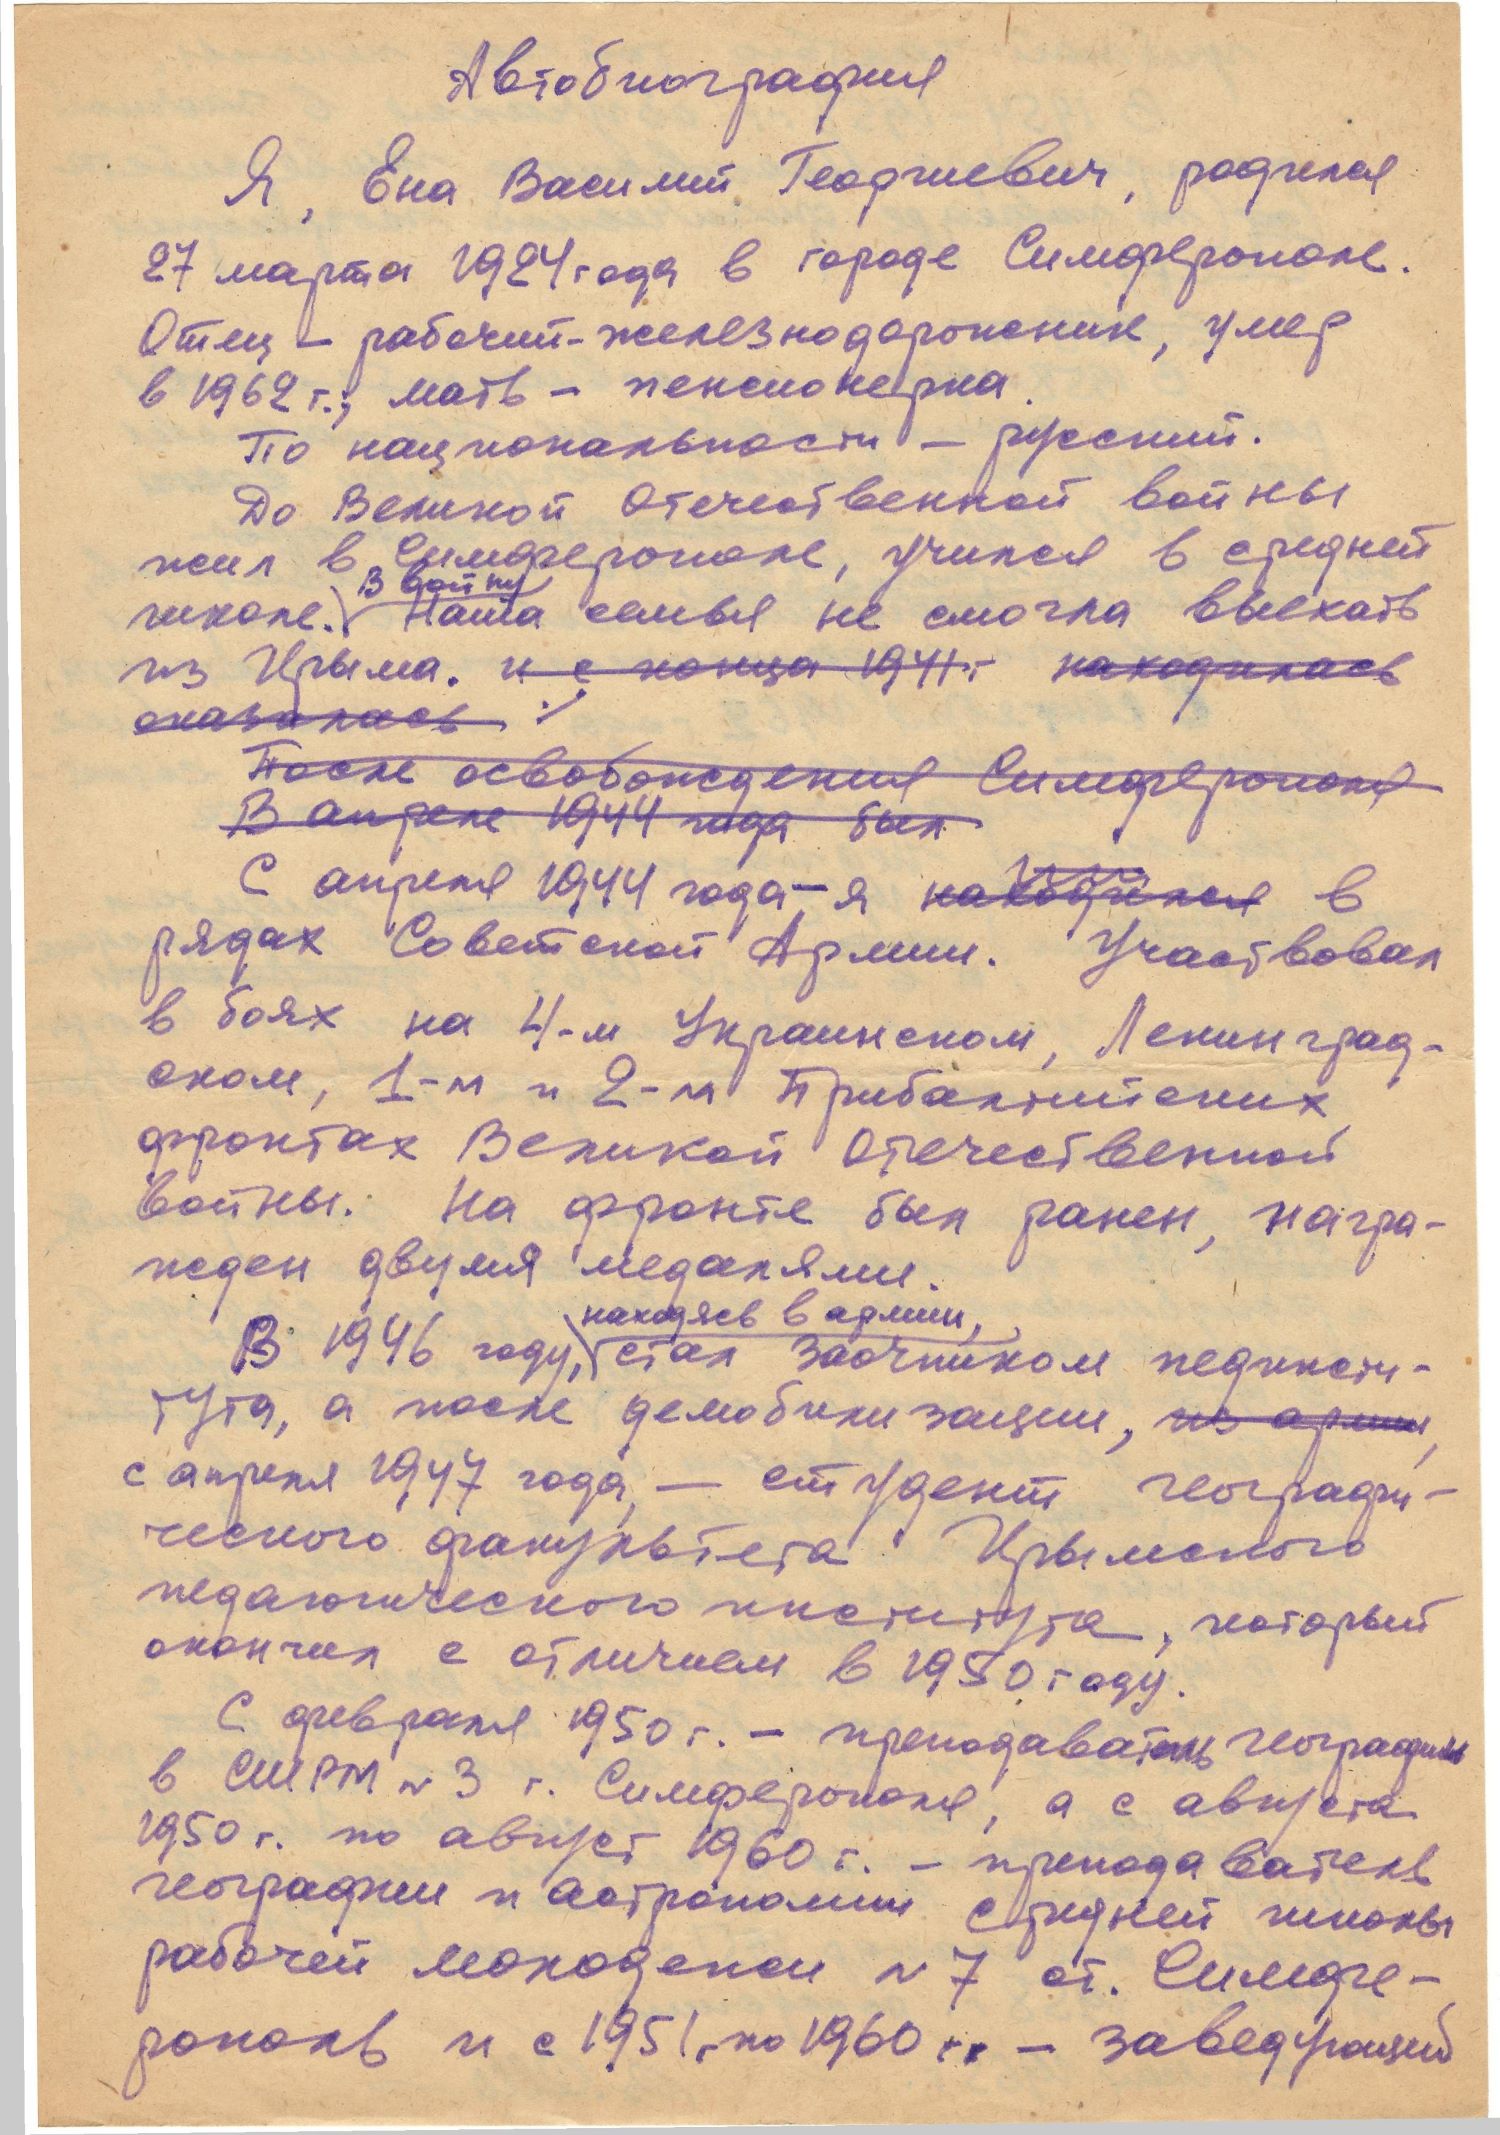 Автобиография
Я, Ена Василий Георгиевич, родился
27 марта 1924 года в городе Симферополе.
Отец – рабочий-железнодорожник, умер
в 1962 г.; мать – пенсионерка.
По национальности – русский.
До Великой Отечественной войны
жил в Симферополе, учился в средней
В войну
школе. Наша семья не смогла выехать
из Крыма. и с конца 1941 г находилась
оказалась
После освобождения Симферополя
В апреле 1944 года был
С апреля 1944 года – я находился в
рядах Советской Армии. Участвовал
в боях на 4-м Украинском, Ленинград-
ском, 1-м и 2-м Прибалтийских
фронтах Великой Отечественной
войны. На фронте был ранен, награ-
жден двумя медалями.
находясь в армии,
В 1946 году, стал заочником пединсти-
тута, а после демобилизации, из армии,
с апреля 1947 года, – студент географи-
ческого факультета Крымского
педагогического института, который
окончил с отличием в 1950 году.
С февраля 1950 г. – преподаватель географии
в СШРМ № 3 г. Симферополя, а с августа
1950 г. по август 1960 г. – преподаватель
географии и астрономии средней школы
рабочей молодежи № 7 ст. Симфе-
рополь и с 1951 г. по 1960 г. – заведующий